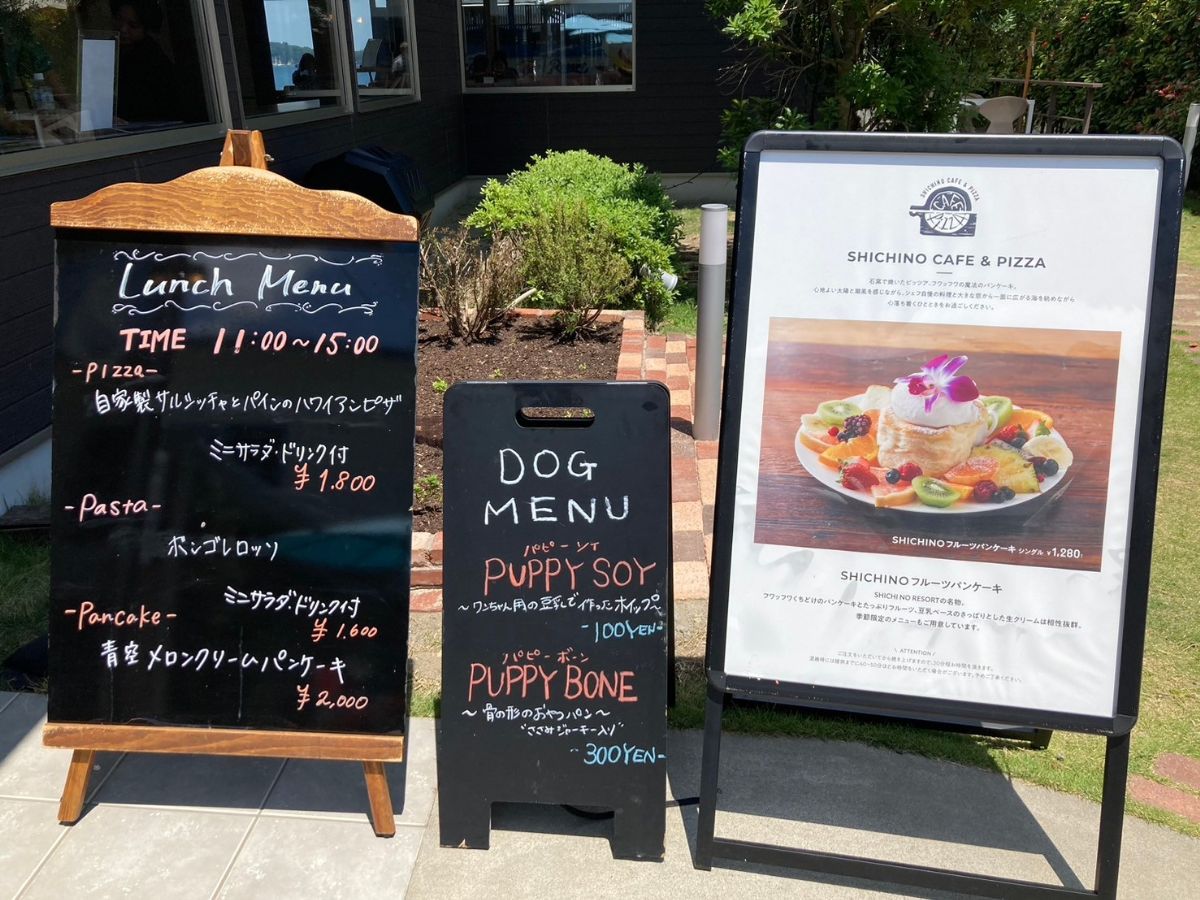 Lunch Menu
TIME 11:00～15:00
-Pizza-
自家製サルシッチャとパインのハワイアンピザ
ミニサラダ・ドリンク付
¥1,800
-Pasta-
ボンゴレロッソ
ミニサラダ・ドリンク付
¥1,600
-Pancake-
青空メロンクリームパンケーキ
¥2,000
DOG
MENU
パピーソイ
PUPPY SOY
～ワンちゃん用の豆乳で作ったホイップ～
-100YEN-
パピーボーン
PUPPY BONE
～骨の形のおやつパン～
"ささみジャーキー入り"
-300YEN-
SHICHINO CAFE & PIZZA
CAFE
PIZZA
SHICHINO CAFE & PIZZA
石窯で焼いたピッツア、フワッフワの魔法のパンケーキ。
心地よい太陽と潮風を感じながら、シェフ自慢の料理と大きな窓から一面に広がる海を眺めながら
心落ち着くひとときをお過ごしください。
SHICHINOフルーツパンケーキ シングル ¥1,280
SHICHINOフルーツパンケーキ
SHICHINO RESORTの名物。
フワッフワくちどけのパンケーキとたっぷりフルーツ、豆乳ベースのさっぱりとした生クリームは相性抜群。
季節限定のメニューもご用意しています。
\ ATTENTION /
ご注文をいただいてから焼き上げますので、20分程お時間を頂きます。
混雑時には提供までに40～50分ほどお時間をいただく場合がございます。予めご了承ください。